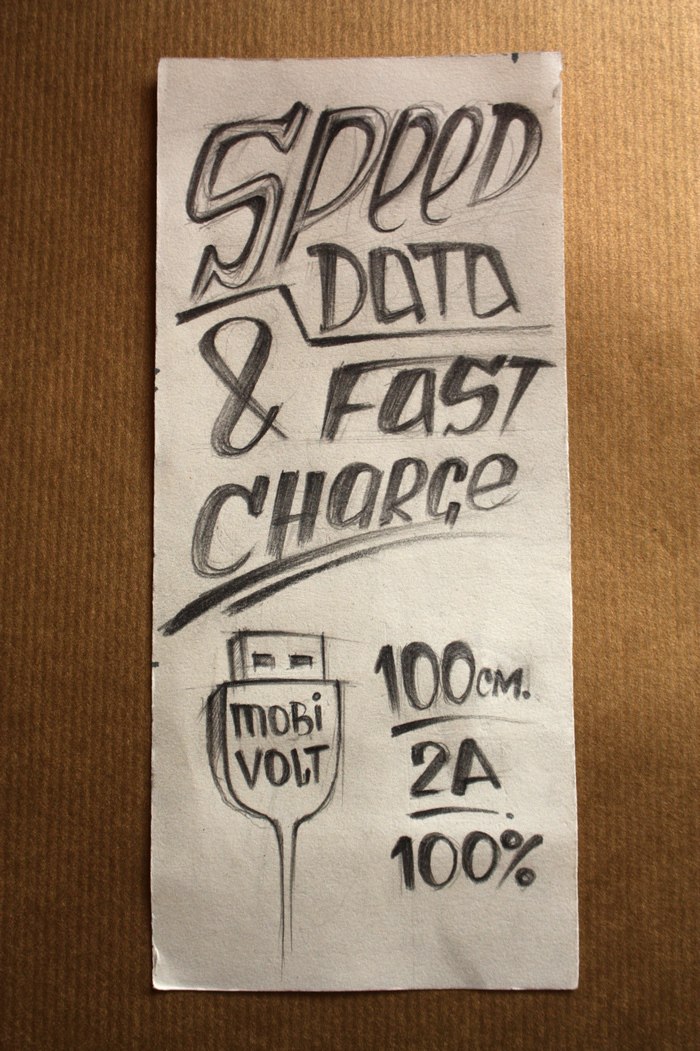 SPeeD
DaTa
& FaST
CHaRGe
mOBi
VOLT
100см.
2A
100%